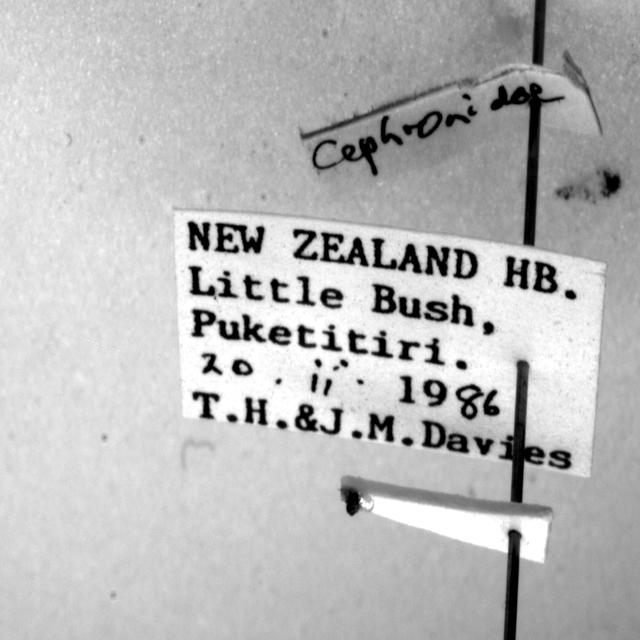 Cephronidae
NEW ZEALAND HB.
Little Bush,
Puketitiri.
20 . ii . 1986
T.H.&J.M.Davies